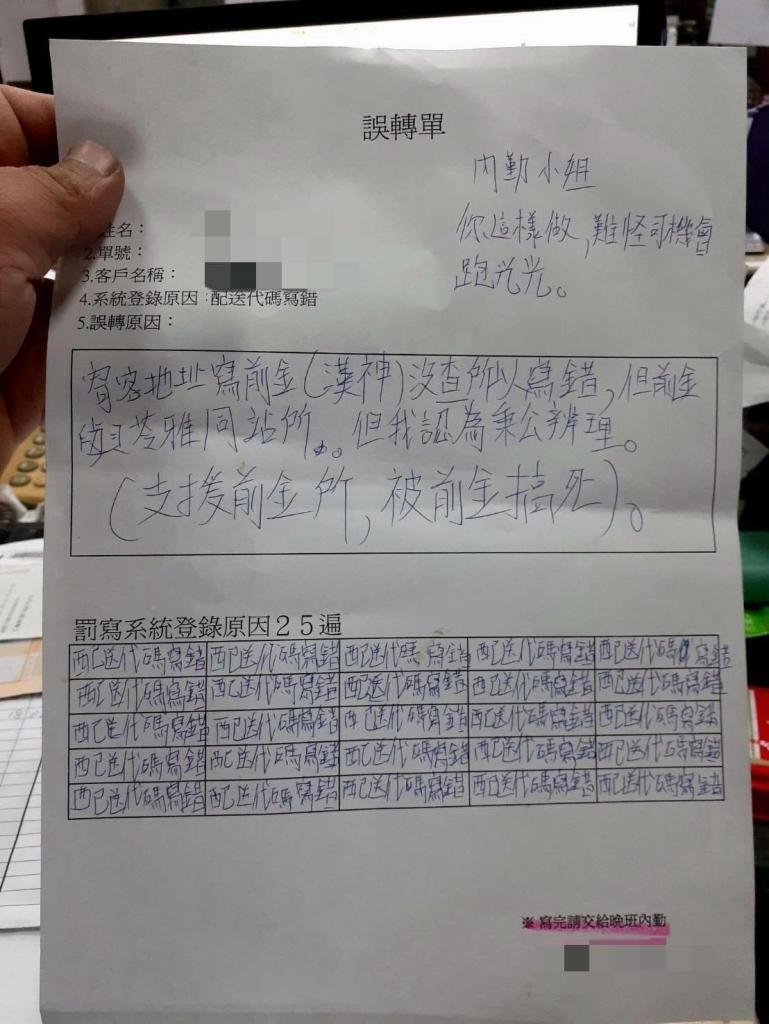 誤轉單
內勤小姐
你這樣做,難怪司機會
跑光光。
姓名：
2.單號：
3.客戶名稱：
4.系統登錄原因：配送代碼寫錯
5.誤轉原因：
寄客地址寫前金(漢神)沒查所以寫錯,但前金
與苓雅同站所。但我認為秉公辨理。
(支援前金所,被前金搞死)。
罰寫系統登錄原因２５遍
配送代碼寫錯 配送代碼寫錯 配送代碼寫錯 配送代碼寫錯 配送代碼寫錯
配送代碼寫錯 配送代碼寫錯 配送代碼寫錯 配送代碼寫錯 配送代碼寫錯
配送代碼寫錯 配送代碼寫錯 配送代碼寫錯 配送代碼寫錯 配送代碼寫錯
配送代碼寫錯 配送代碼寫錯 配送代碼寫錯 配送代碼寫錯 配送代碼寫錯
配送代碼寫錯 配送代碼寫錯 配送代碼寫錯 配送代碼寫錯 配送代碼寫錯
※ 寫完請交給晚班內勤